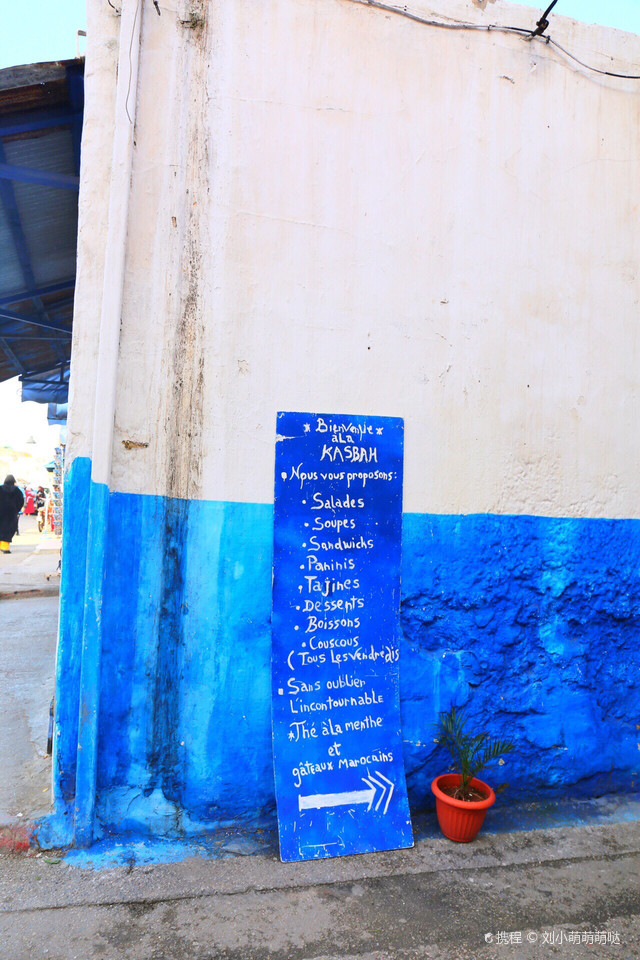 * Bienvenue *
à La
KASBAH
• Nous vous proposons :
• Salades
• Soupes
• Sandwichs
• Paninis
• Tajines
• Desserts
• Boissons
• Couscous
(Tous Les vendredis
• Sans oublier
L'incontournable
* Thé à la menthe
et
gâteaux Marocains
携程 © 刘小萌萌萌哒